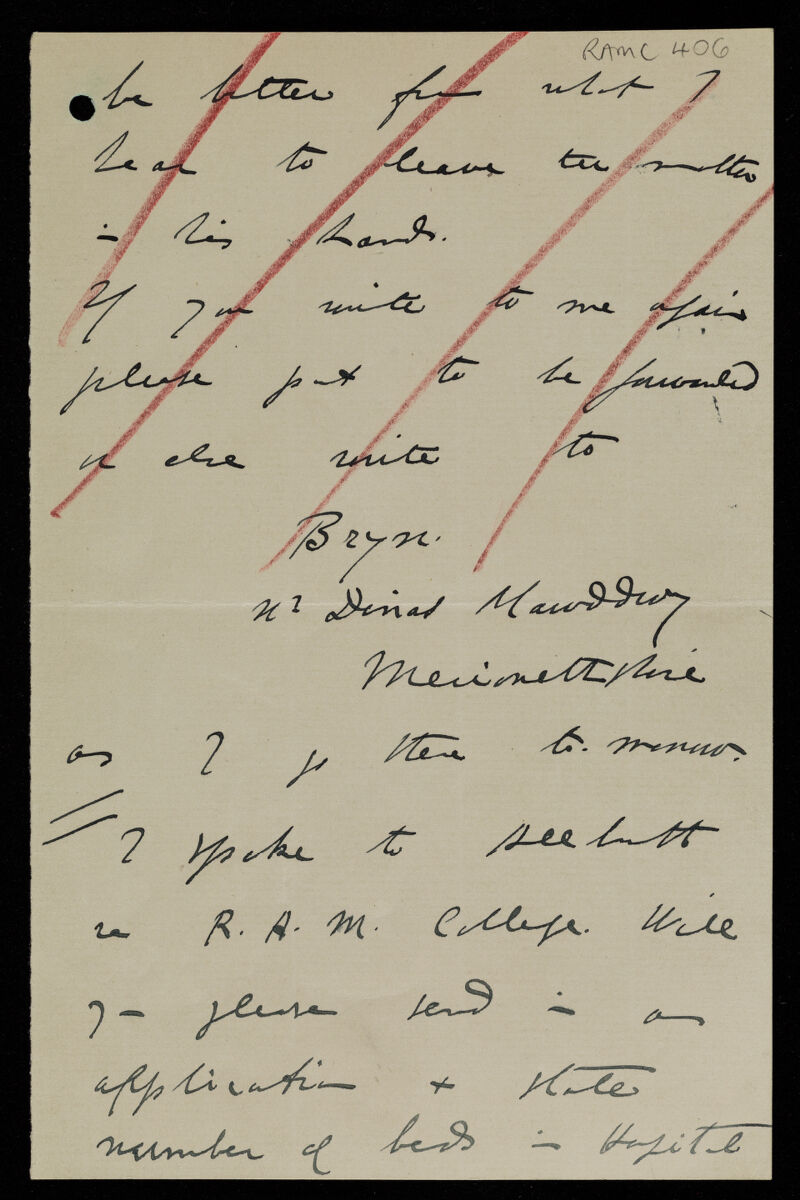 RAMC 406
be better from what I
hear to leave the matter
in his hands.
If you write to me again
please put to be forwarded
or else write to
Bryn.
nr Dinas Mawddwy
Merionethshire
as I go there to-morrow.
I spoke to Allbutt
re R.A.M. College. Will
you please send in an
application + state
number of beds in Hospital